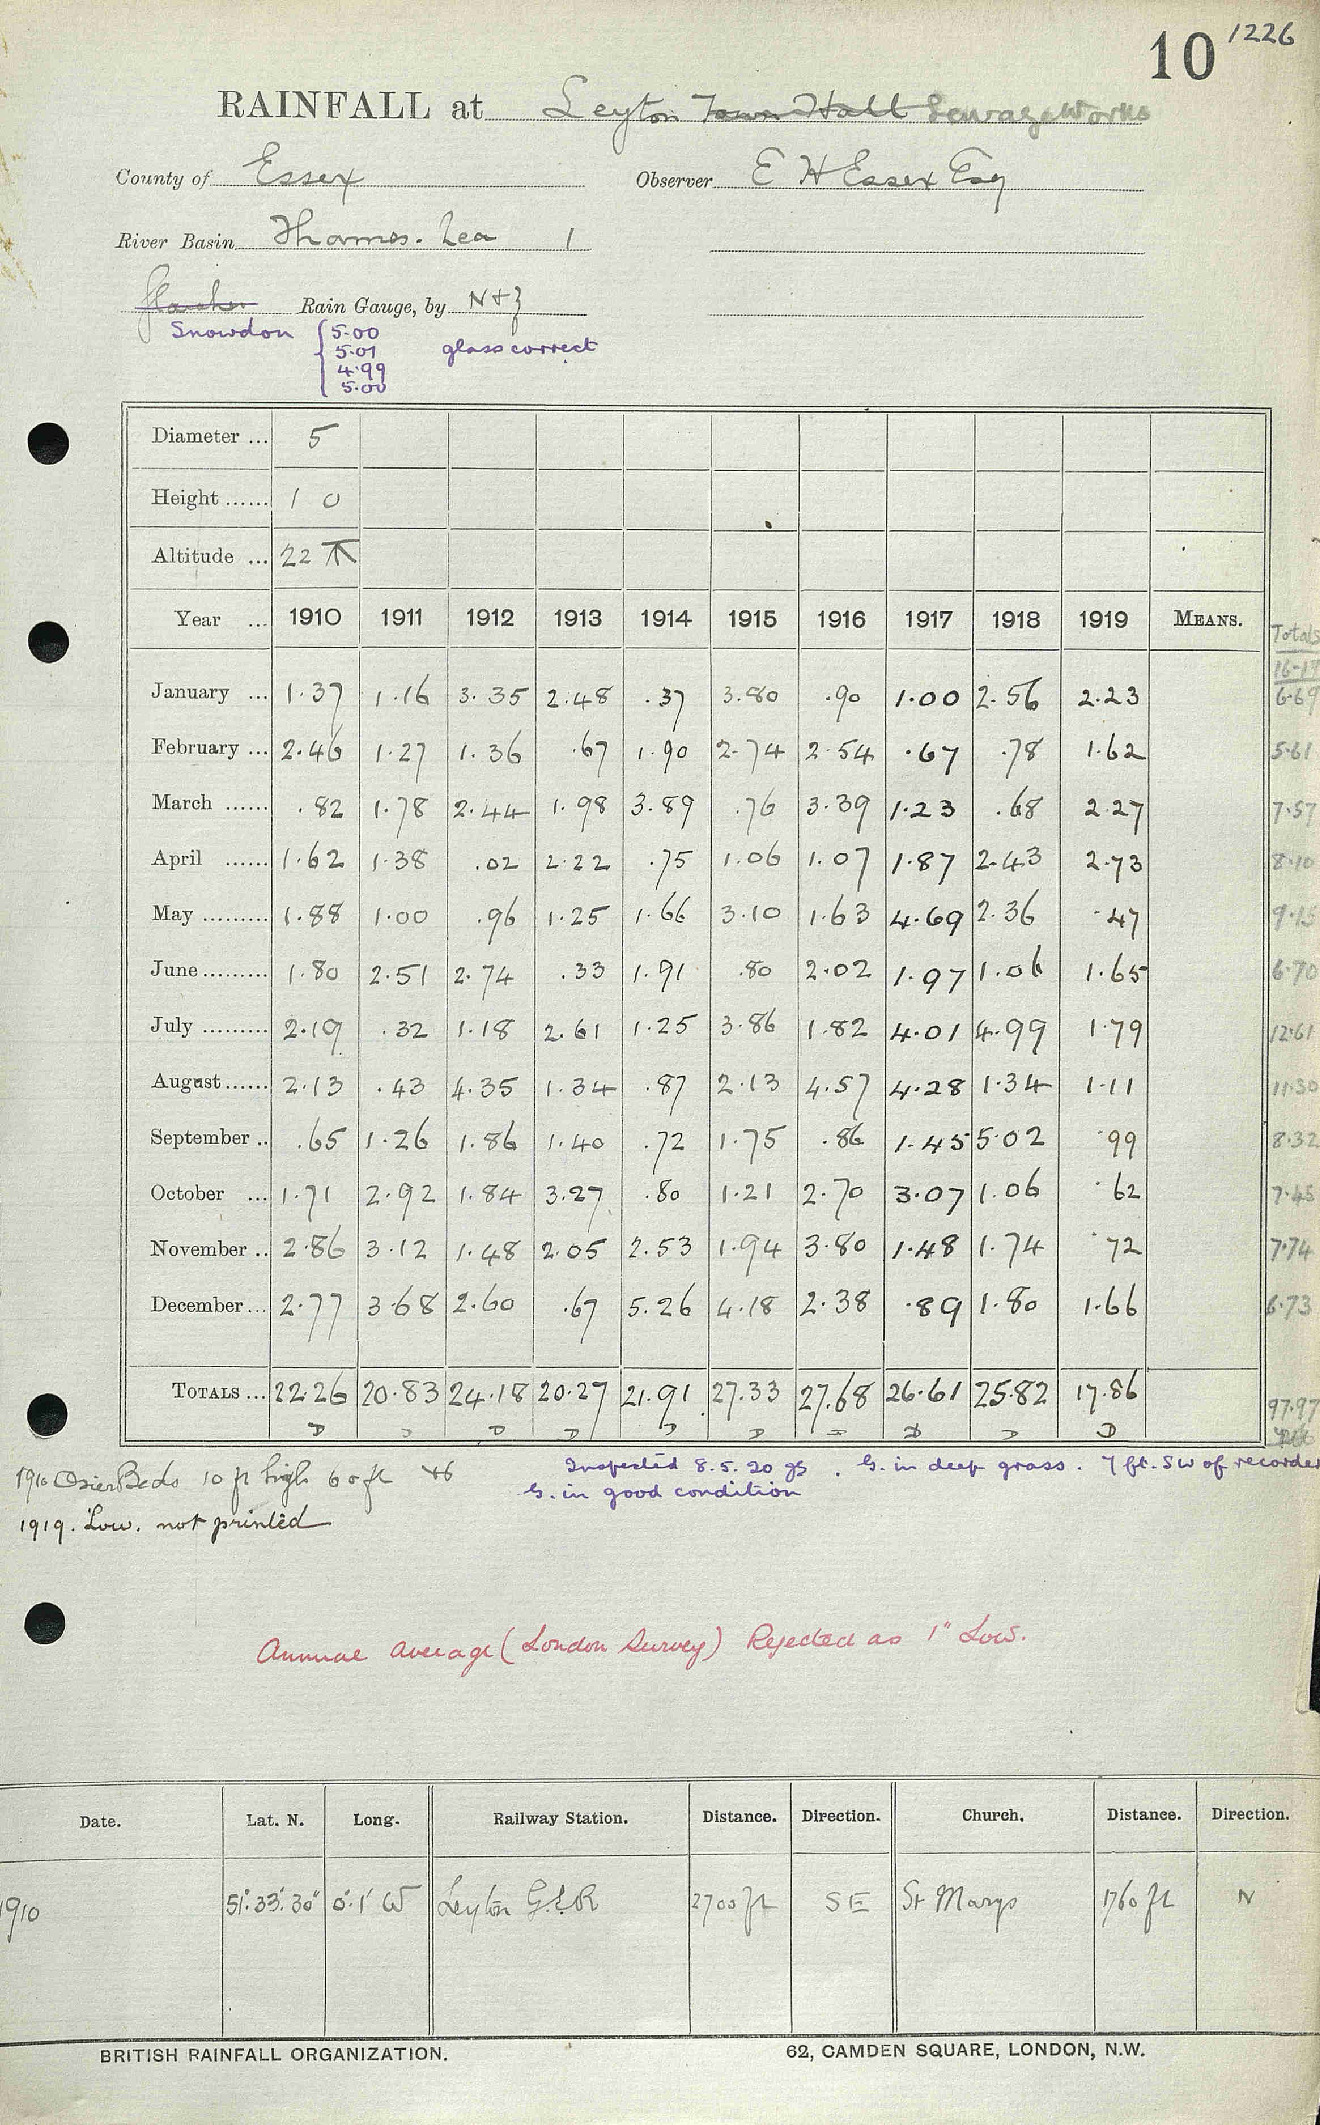 10 1226
RAINFALL at Leyton Town Hall Sewage Works
County of Essex Observer E H Essex Esq
River Basin Thames. Lea 1
Rain Gauge, by N & Z
Snowdon { 5.00 5.01 4.99 5.00 glass correct
Diameter ... 5
Height ...... 1 0
Altitude ... 22
Year ... 1910 1911 1912 1913 1914 1915 1916 1917 1918 1919 MEANS. Totals
16-19
January ... 1.37 1.16 3.35 2.48 .37 3.80 .90 1.00 2.56 2.23 6.69
February ... 2.46 1.27 1.36 .67 1.90 2.74 2.54 .67 .78 1.62 5.61
March ...... .82 1.78 2.44 1.98 3.89 .76 3.39 1.23 .68 2.27 7.57
April ...... 1.62 1.38 .02 2.22 .75 1.06 1.07 1.87 2.43 2.73 8.10
May ......... 1.88 1.00 .96 1.25 1.66 3.10 1.63 4.69 2.36 .47 9.15
June ......... 1.80 2.51 2.74 .33 1.91 .80 2.02 1.97 1.06 1.65 6.70
July ......... 2.19 .32 1.18 2.61 1.25 3.86 1.82 4.01 4.99 1.79 12.61
August ...... 2.13 .43 4.35 1.34 .87 2.13 4.57 4.28 1.34 1.11 11.30
September .. .65 1.26 1.86 1.40 .72 1.75 .86 1.45 5.02 .99 8.32
October ... 1.71 2.92 1.84 3.27 .80 1.21 2.70 3.07 1.06 .62 7.45
November .. 2.86 3.12 1.48 2.05 2.53 1.94 3.80 1.48 1.74 .72 7.74
December ... 2.77 3.68 2.60 .67 5.26 4.18 2.38 .89 1.80 1.66 6.73
TOTALS ... 22.26 20.83 24.18 20.27 21.91 27.33 27.68 26.61 25.82 17.86 97.97
1910 Osier Beds 10 ft high 60 ft
Inspected 8.5.20 gs . G. in deep grass. 7 ft. SW of recorder
G. in good condition
1919. Low. not printed
Annual average (London Survey) Rejected as 1" Low.
Date. Lat. N. Long. Railway Station. Distance. Direction. Church. Distance. Direction.
1910 51°.33'.30" 0°.1' W Leyton G.E.R 2700 ft SE St Marys 1760 ft N
BRITISH RAINFALL ORGANIZATION. 62, CAMDEN SQUARE, LONDON, N.W.